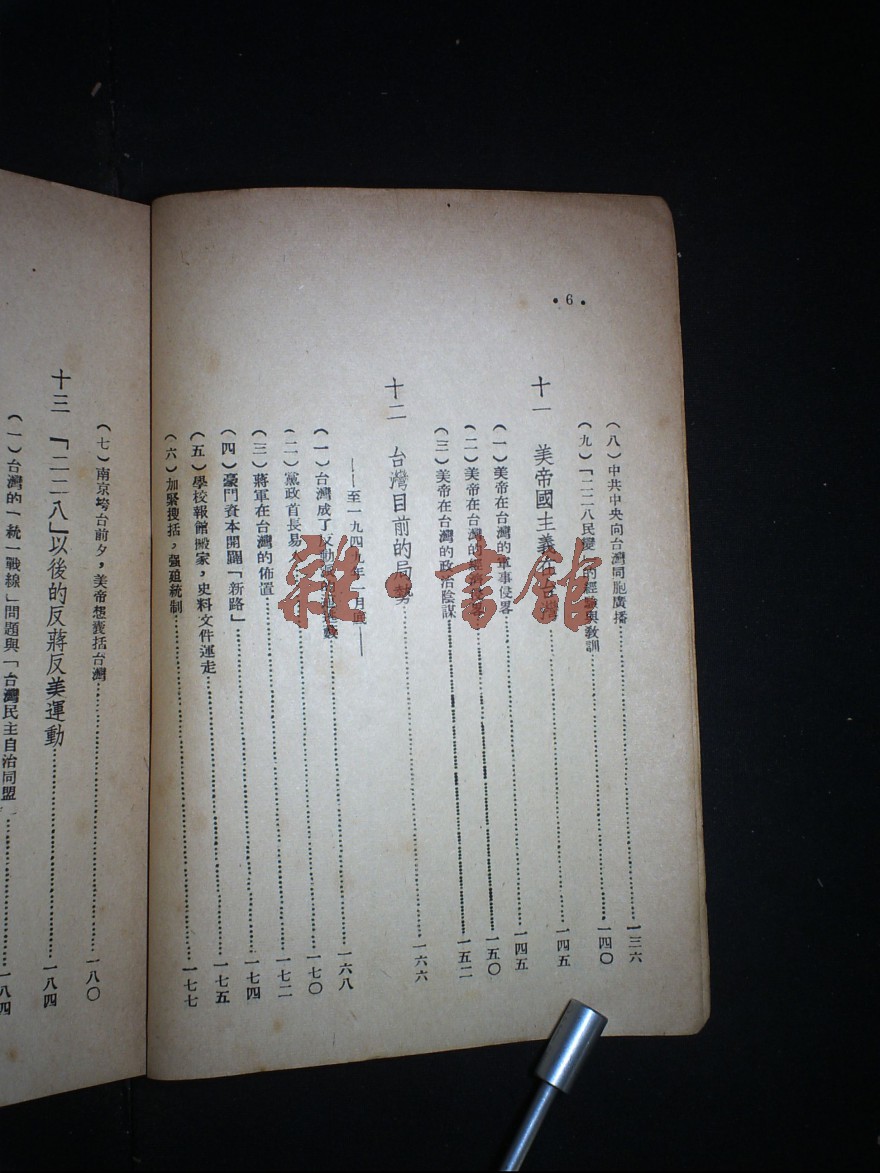 • 6 •
(八)中共中央向台灣同胞廣播……一三六
(九)「二二八民變」的經驗與教訓……一四〇
十一 美帝國主義在台灣……一四五
(一)美帝在台灣的軍事侵畧……一四五
(二)美帝在台灣的經濟……一五〇
(三)美帝在台灣的政治陰謀……一五二
十二 台灣目前的局勢……一六六
——至一九四九年 月底——
(一)台灣成了反動派的……一六八
(二)黨政首長易人……一七〇
(三)蔣軍在台灣的佈置……一七二
(四)豪門資本開闢「新路」……一七四
(五)學校報館搬家,史料文件運走……一七五
(六)加緊搜括,强迫統制……一七七
(七)南京垮台前夕,美帝想囊括台灣……一八〇
十三 「二二八」以後的反蔣反美運動……一八四
(一)台灣的「統一戰線」問題與「台灣民主自治同盟……一八四
雜·書館